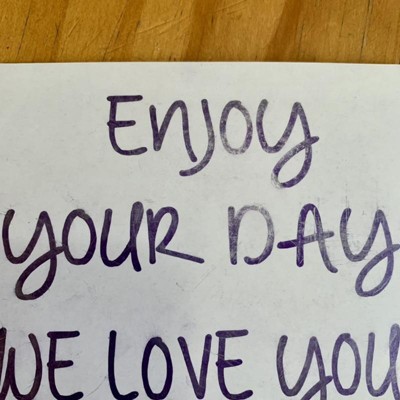 ENJOY
YOUR DAY
WE LOVE YOU